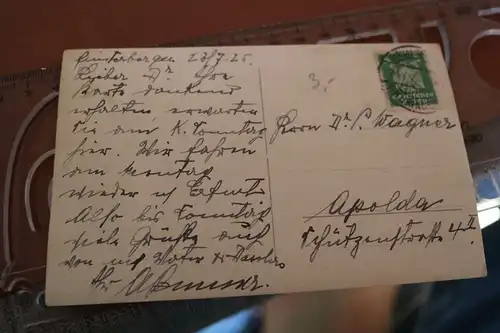 Finsterbergen 23/7.25.
Lieber Dr Ihre
Karte dankend
erhalten, erwarten
Sie am k. Sonntag
hier. Wir fahren
am Montag
wieder n/ Erfurt
Also bis Sonntag
viele Grüße auch
von m/ Vater
Ihr
3,-
Herrn Dr. P. Wagner
Apolda
Schützenstraße 4 II